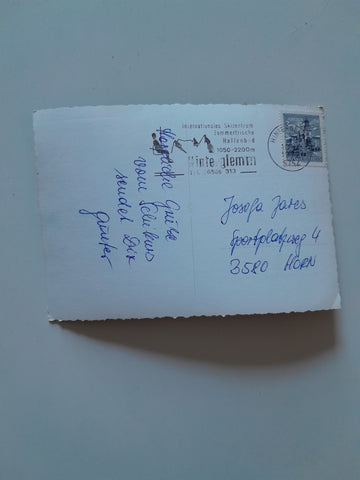 Internationales Skizentrum
Sommerfrische
Hallenbad
1050-2200m
Hinterglemm
Tel. 06506 313
5754
Herzliche Grüße
vom Schikurs
sendet Dir
Günter
Josefa Jares
Sportplatzweg 4
3580 HORN